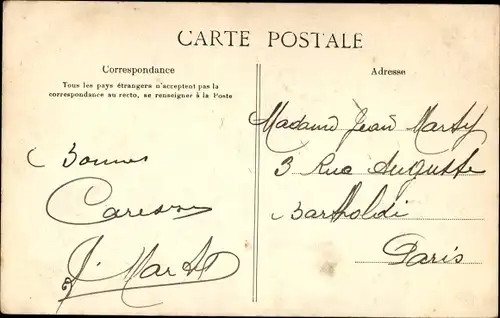 CARTE POSTALE
Correspondance
Tous les pays étrangers n'acceptent pas la
correspondance au recto, se renseigner à la Poste
Bonnes
Caresses
J. Marty
Adresse
Madame Jean Marty
3 Rue Auguste
Bartholdi
Paris